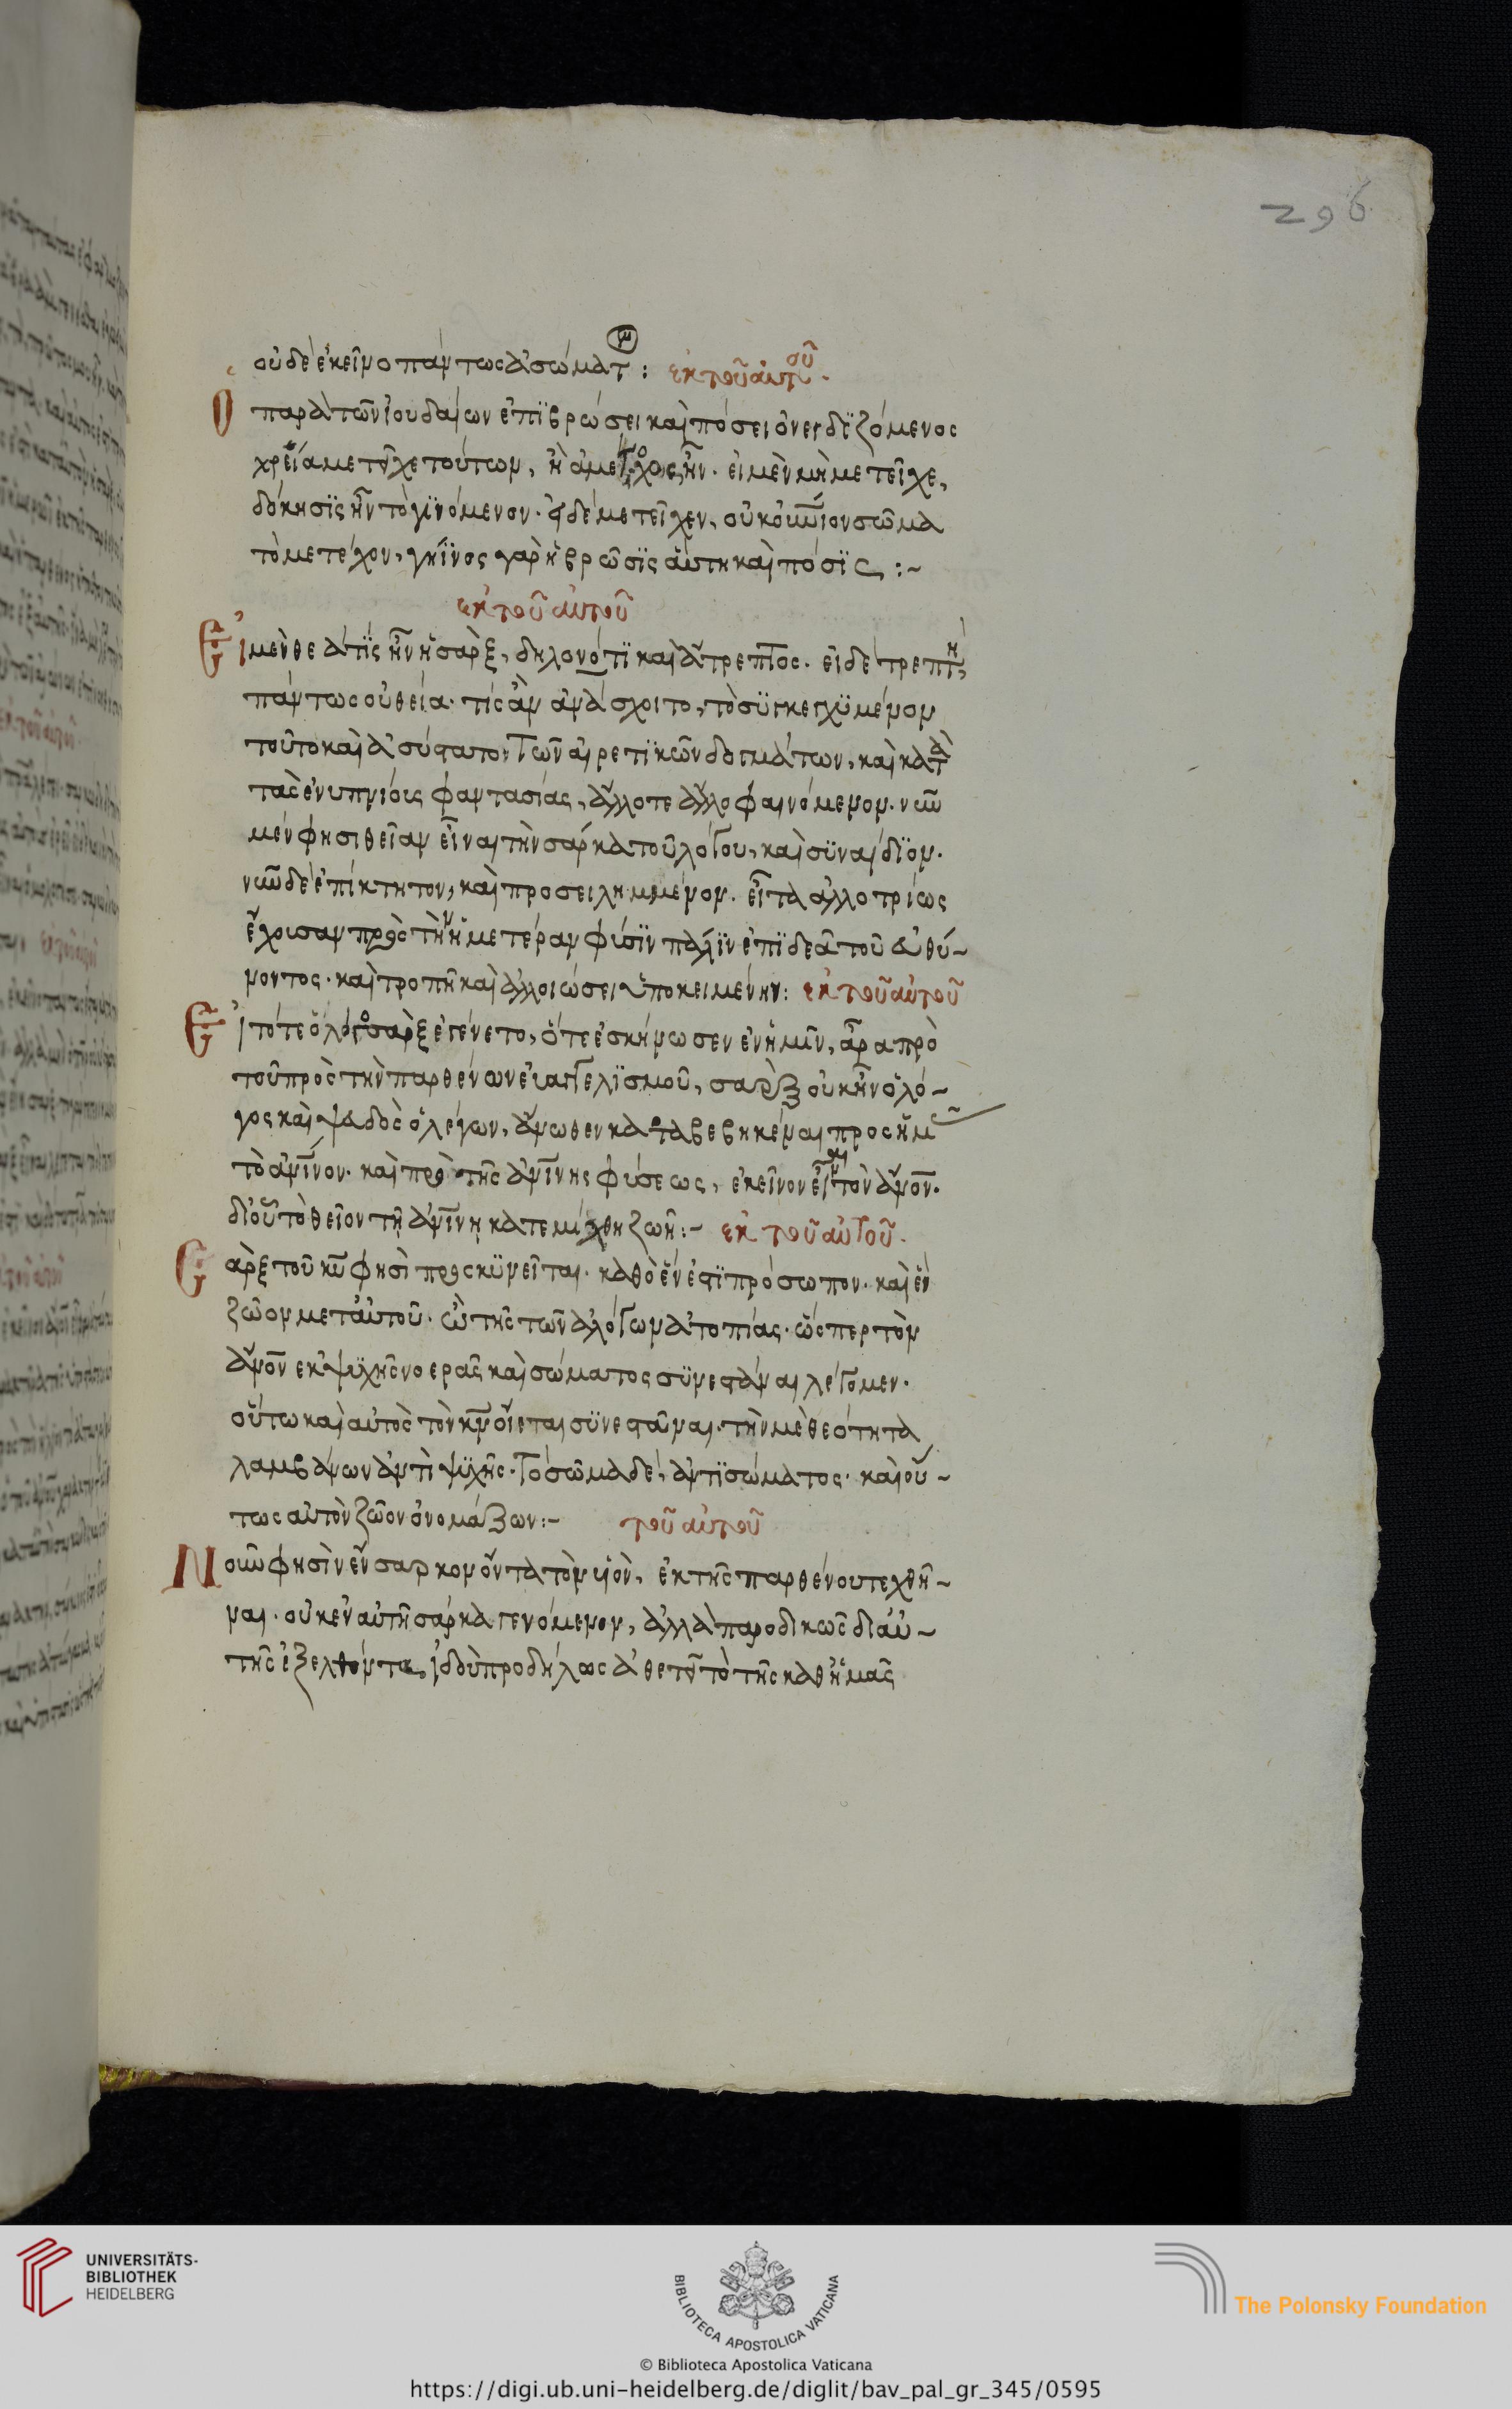 296
οὐδὲ ἐκεῖνο πάντως ἀσώματ : ἐκ τοῦ αὐτοῦ.
Ὁ παρὰ τῶν ἰουδαίων ἐπὶ βρώσει καὶ πόσει ὀνειδιζόμενος
χρείᾳ μετεῖχε τούτων, ἢ ἀμέτοχος ἦν. εἰ μὲν μὴ μετεῖχε,
δόκησϊς ἦν τὸ γϊνόμενον. εἰ δὲ μετεῖχεν, οὐκ οὐνιον σῶμα
τὸ μετέχον, γήϊνος γὰρ ἡ βρῶσϊς αὕτη καὶ πόσϊς :~
ἐκ τοῦ αὐτοῦ
Εἰ μὲν θεότης ἦν ἡ σὰρξ, δηλονότϊ καὶ ἄτρεπτος. εἰ δὲ τρεπτὴ,
πάντως οὐ θεία. τίς ἂν ἀνάσχοιτο, τὸ συγκεχϋμένον
τοῦτο καὶ ἀσύστατον τῶν αἱρετϊκῶν δογμάτων, καὶ κατὰ
τὰς ἐνυπνίοις φαντασίας, ἄλλοτε ἄλλο φαινόμενον. νῦν
μέν φησι θείαν εἶναι τὴν σάρκα τοῦ λόγου, καὶ σϋναΐδϊον.
νῦν δὲ ἐπίκτητον, καὶ προσειλημμένον. εἶτα ἀλλοτρίως
ἔχουσαν πρὸς τὴν ἡμετέραν φύσϊν πάλϊν ἐπϊδεᾶ τοῦ εὐθύ-
νοντος. καὶ τροπῇ καὶ ἀλλοιώσει ὑποκειμένην: ἐκ τοῦ αὐτοῦ
Εἰ τότε ὁ λόγος σὰρξ ἐγένετο, ὅτε ἐσκήνωσεν ἐν ἡμῖν, ἄρα πρὸ
τοῦ πρὸς τὴν παρθένων εὐαγγελϊσμοῦ, σὰρξ οὐκ ἦν ὁ λό-
γος καὶ ψευδὸς ὁ λέγων, ἄνωθεν καταβεβηκέναι προς ἡμ
τὸ ἀνῖνον. καὶ πρὸ τῆς ἀνίνης φύσεως, ἐκεῖνον εἶναι τὸν ἄνον.
δϊ οὗ τὸ θεῖον τῇ ἀνίνῃ κατεμίχθη ζωῇ :~ ἐκ τοῦ αὐτοῦ.
Σὰρξ τοῦ κυ φησὶ προσκϋνεῖται. καθὸ ἕν ἐστϊ πρόσωπον. καὶ ἓν
ζῶον μετ' αὐτοῦ. ὢ τῆς τῶν ἀλόγων ἀτοπίας. ὥσπερ τὸν
ἄνον ἐκ ψϋχῆς νοερᾶς καὶ σώματος σϋνεστάναι λέγομεν.
οὕτω καὶ αὐτὸς τὸν κν οἴεται σϋνεστάναι. τὴν μὲν θεότητα
λαμβάνων ἀντὶ ψϋχῆς. τὸ σῶμα δὲ, ἀντϊ σώματος. καὶ οὕ-
τως αὐτὸν ζῶον ὀνομάζων :~ τοῦ αὐτοῦ
Νοῦν φησὶν ἔνσαρκον ὄντα τὸν υἱὸν, ἐκ τῆς παρθένου τεχθῆ-
ναι. οὐκ ἐν αὐτῇ σάρκα γενόμενον, ἀλλὰ παροδικῶς δι' αὐ-
τῆς ἐξελθόντα, ἰδοὺ προδήλως ἀθετεῖ τὸ τῆς καθ' ἡμᾶς
UNIVERSITÄTS-
BIBLIOTHEK
HEIDELBERG
BIBLIOTECA APOSTOLICA VATICANA
The Polonsky Foundation
© Biblioteca Apostolica Vaticana
https://digi.ub.uni-heidelberg.de/diglit/bav_pal_gr_345/0595